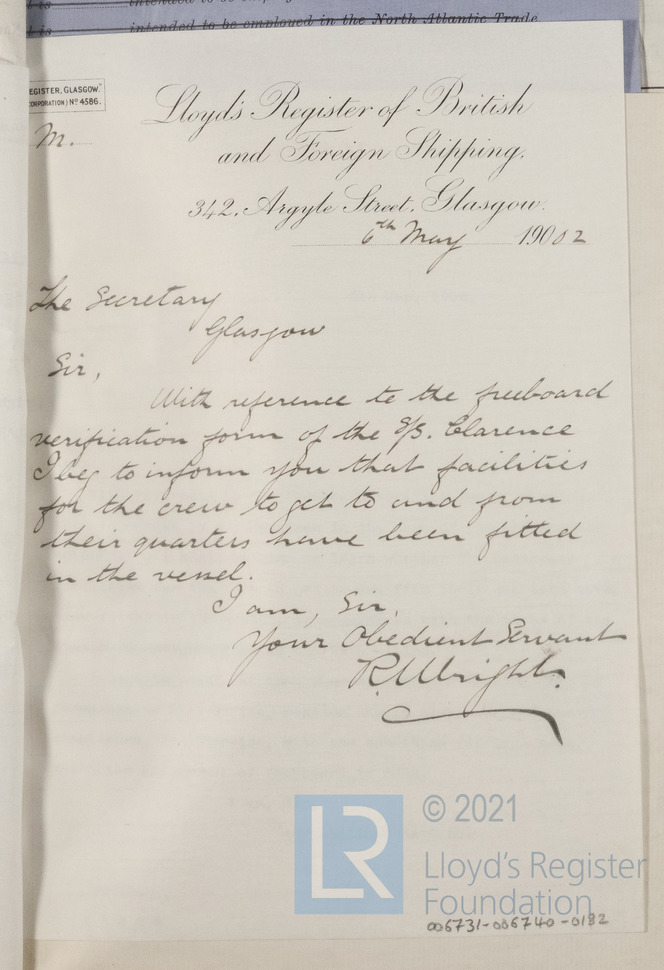 intended to be employed in the North Atlantic Trade
EGISTER, GLASGOW."
CORPORATION) Nº 4586.
M.
Lloyd's Register of British
and Foreign Shipping.
342, Argyle Street, Glasgow.
6th May 1902
The Secretary
Glasgow
Sir,
With reference to the freeboard
verification form of the S/S. Clarence
I beg to inform you that facilities
for the crew to get to and from
their quarters have been fitted
in the vessel.
I am, Sir,
Your Obedient Servant
R. Wright.
LR
© 2021
Lloyd's Register
Foundation
006731-006740-0182